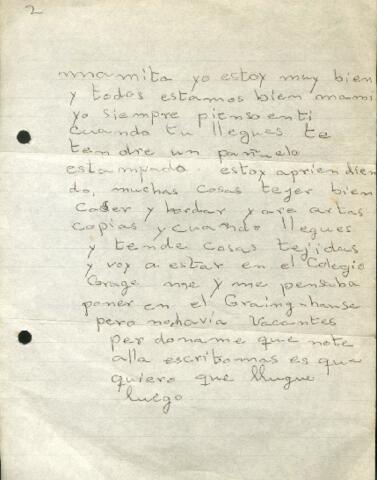 2
mamita yo estoy muy bien
y todos estamos bien mami
yo siempre pienso enti
cuando tu llegues te
tendre un pañuelo
estampado. estoy apriendien
do, muchas cosas tejer bien
coser y bordar y are artas
copias y cuando llegues
y tende cosas tejidas
y voy a estar en el Colegio
Grage y me pensaba
poner en el Graing-hause
pero nohavia vacantes
perdoname que note
alla escritomas es que
quiero que llugue
luego